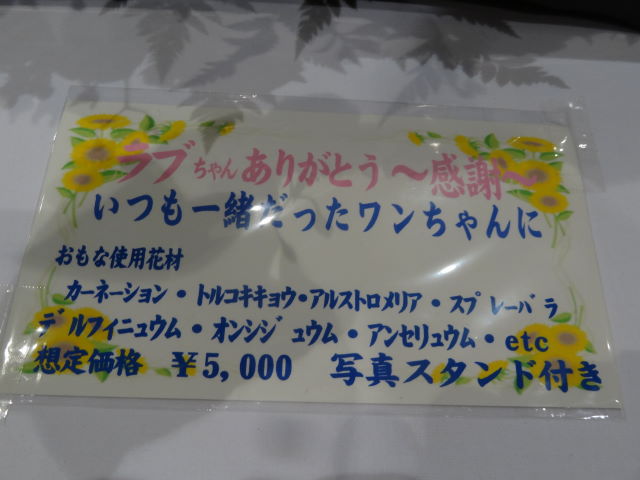 ラブちゃんありがとう～感謝～
いつも一緒だったワンちゃんに
おもな使用花材
カーネーション・トルコキキョウ・アルストロメリア・スプレーバラ
デルフィニュウム・オンシジュウム・アンセリュウム・etc
想定価格 ￥5,000 写真スタンド付き